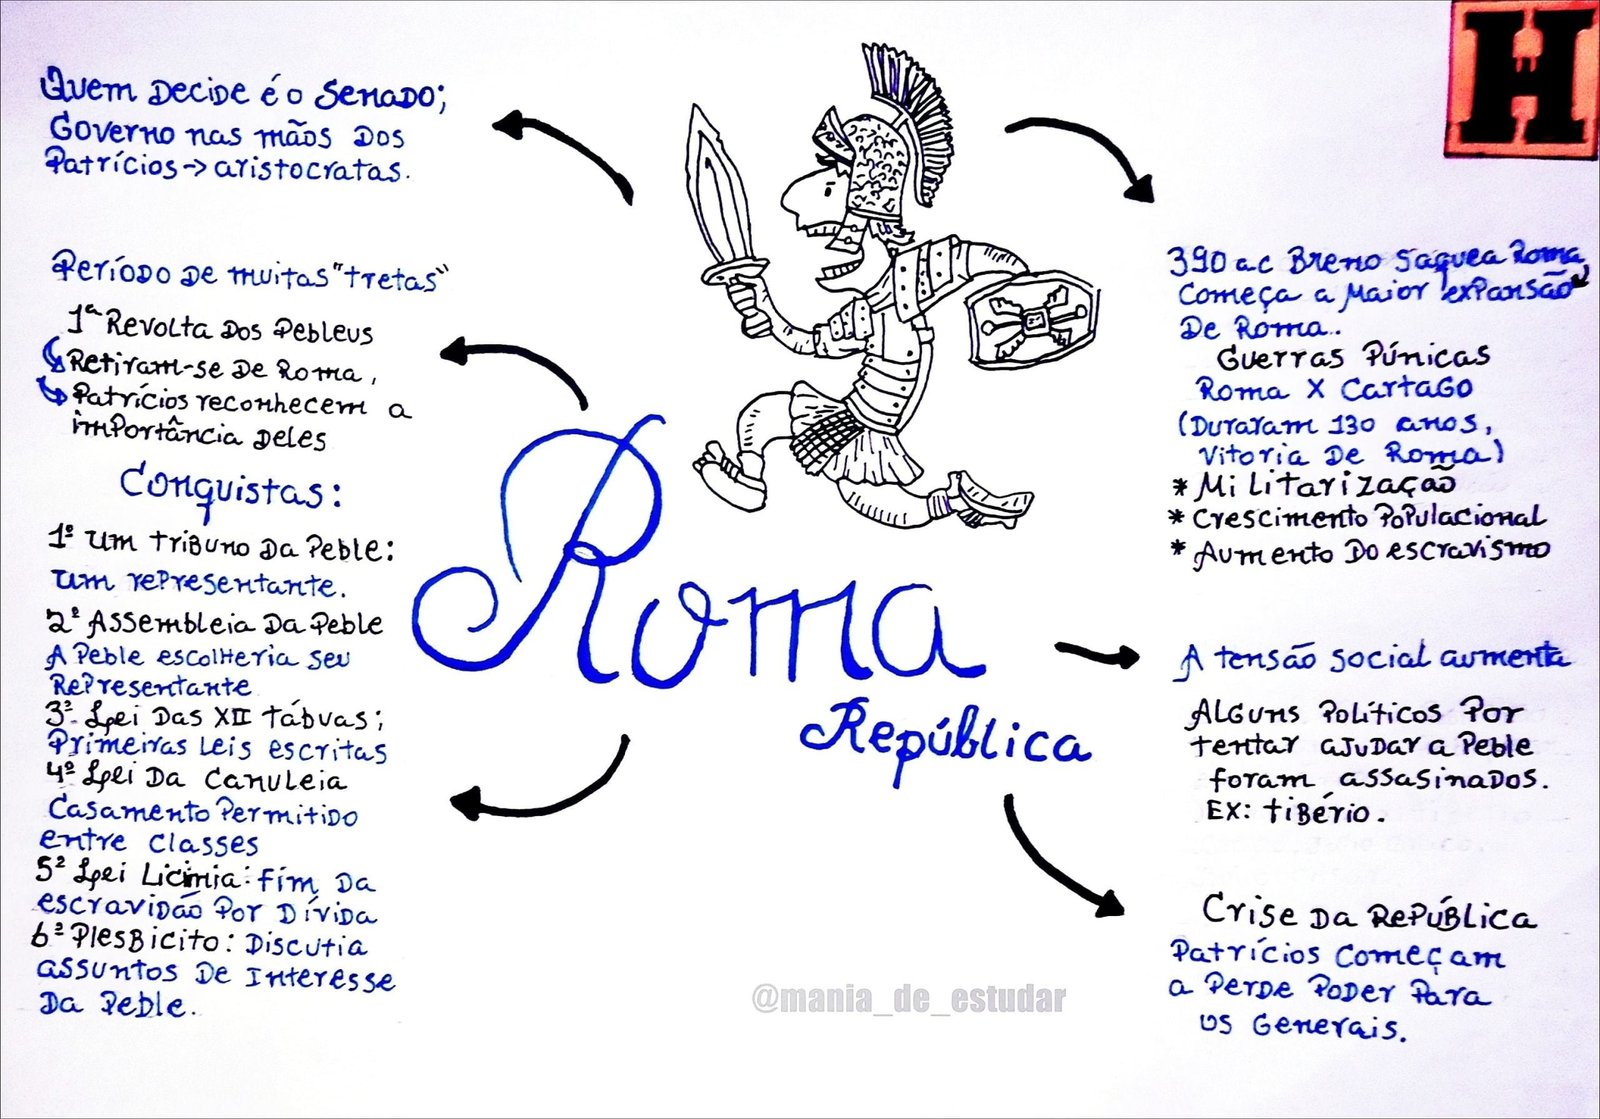 H
Quem Decide é o Senado;
Governo nas mãos dos
Patrícios → aristocratas.
Período de muitas "tretas"
1ª Revolta dos Pebleus
Retiram-se de Roma,
Patrícios reconhecem a
importância deles
Conquistas:
1º um tribuno da Peble:
um representante.
2º Assembleia da Peble
A Peble escolheria seu
Representante
3º Lei das XII tábuas;
Primeiras leis escritas
4º Lei da Canuleia
Casamento Permitido
entre classes
5º Lei Licinia: fim da
escravidão por dívida
6º Plesbicito: Discutia
assuntos de interesse
da Peble.
Roma
República
390 a.c Breno saquea Roma
Começa a maior expansão
de Roma..
Guerras Púnicas
Roma X Cartago
(Duraram 130 anos,
Vitoria de Roma)
* Militarização
* Crescimento Populacional
* Aumento do escravismo
A tensão social aumenta
Alguns políticos por
tentar ajudar a Peble
foram assasinados.
Ex: Tibério.
Crise da República
Patrícios começam
a perde poder para
us Generais.
@mania_de_estudar